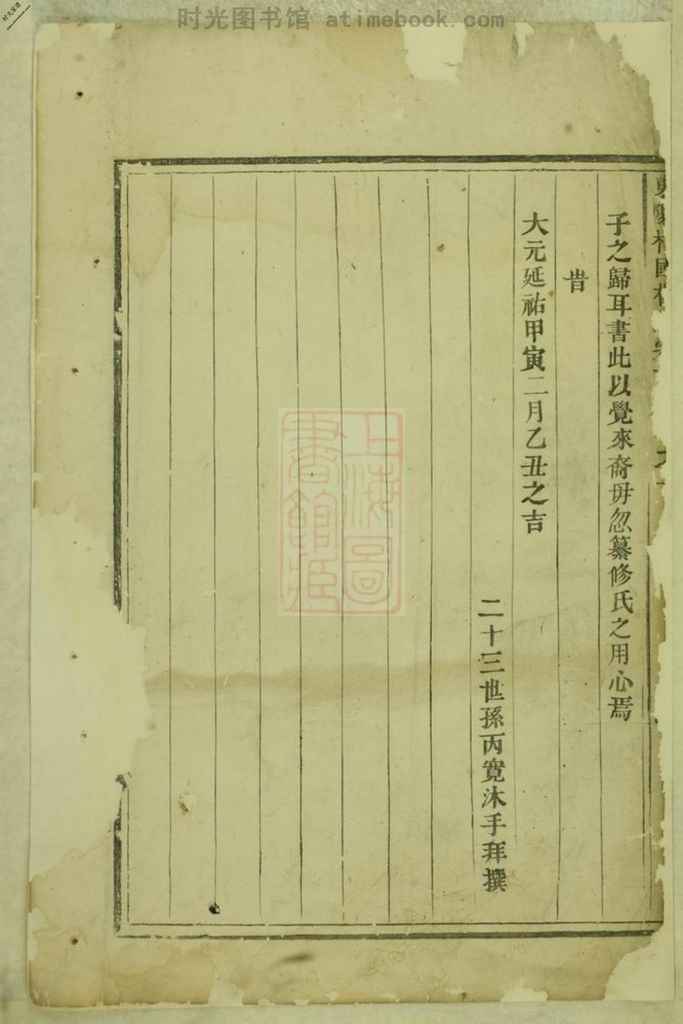 时光图书馆 atimebook.com
子之歸耳書此以覺來裔毋忽纂修氏之用心焉
旹
大元延祐甲寅二月乙丑之吉
二十三世孫丙寬沐手拜撰
上海圖
書館藏